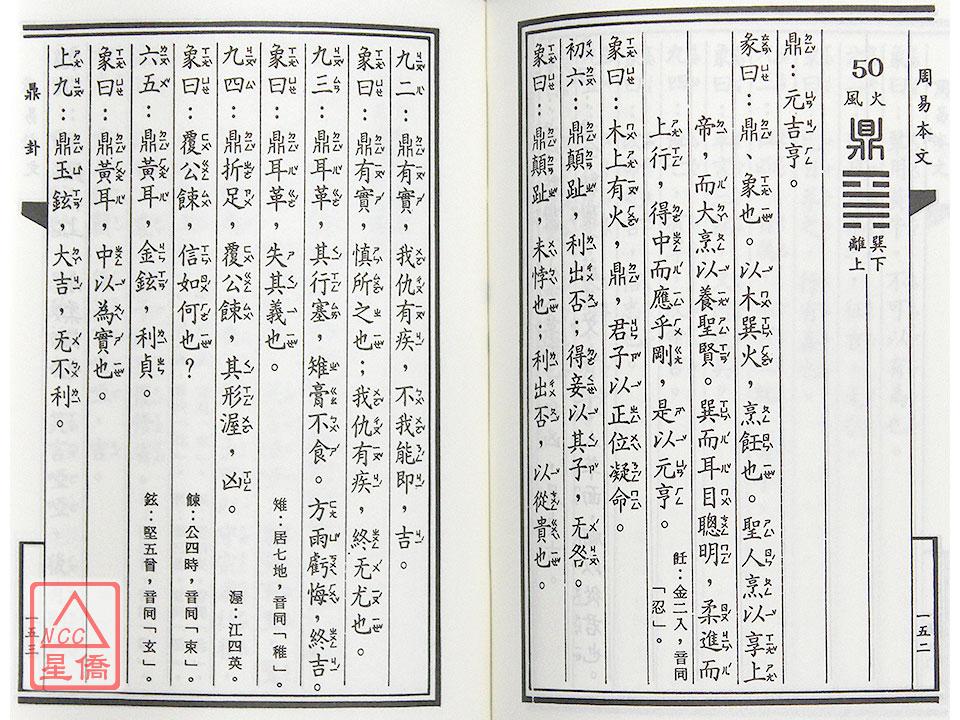 周易本文
一五二
50 火風 鼎 巽下離上
鼎：元吉亨。
彖曰：鼎、象也。以木巽火，烹飪也。聖人烹以享上
帝，而大烹以養聖賢。巽而耳目聰明，柔進而
上行，得中而應乎剛，是以元亨。
飪：金二入，音同「忍」。
象曰：木上有火，鼎，君子以正位凝命。
初六：鼎顛趾，利出否；得妾以其子，无咎。
象曰：鼎顛趾，未悖也；利出否，以從貴也。
九二：鼎有實，我仇有疾，不我能即，吉。
象曰：鼎有實，慎所之也；我仇有疾，終无尤也。
九三：鼎耳革，其行塞，雉膏不食。方雨虧悔，終吉。
象曰：鼎耳革，失其義也。
雉：居七地，音同「稚」。
九四：鼎折足，覆公餗，其形渥，凶。
渥：江四英。
象曰：覆公餗，信如何也？
餗：公四時，音同「束」。
六五：鼎黃耳，金鉉，利貞。
鉉：堅五曾，音同「玄」。
象曰：鼎黃耳，中以為實也。
上九：鼎玉鉉，大吉，无不利。
鼎卦
一五三
NCC
星僑